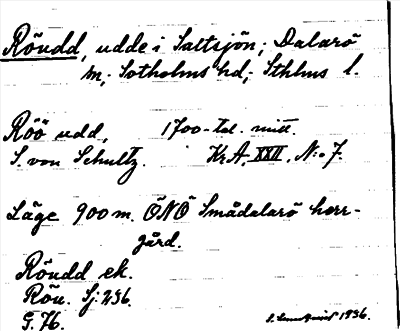 Röudd, udde i Saltsjön; Dalarö
m; Sotholms hd; Sthlms l.
Röö udd, 1700-tal. mitt.
S. von Schultz. Kr.A. XXII. N:o 7.
Läge 900 m. ÖNÖ Smådalarö herr-
gård.
Röudd ek.
Röu. Sj: 236.
G. 76.
1936.